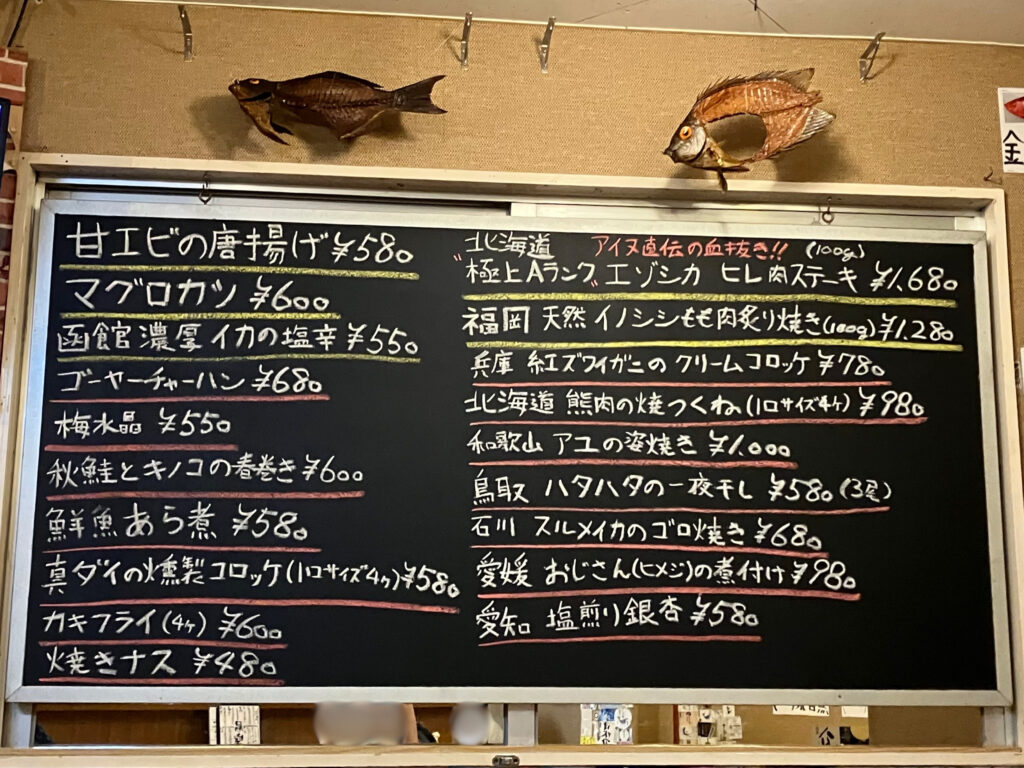 甘エビの唐揚げ ¥580
マグロカツ ¥600
函館 濃厚 イカの塩辛 ¥550
ゴーヤーチャーハン ¥680
梅水晶 ¥550
秋鮭とキノコの春巻き ¥600
鮮魚あら煮 ¥580
真ダイの燻製コロッケ(1口サイズ4ヶ) ¥580
カキフライ(4ヶ) ¥600
焼きナス ¥480
北海道 アイヌ直伝の血抜き!! (100g)
"極上Aランク" エゾシカ ヒレ肉ステーキ ¥1.680
福岡 天然 イノシシもも肉炙り焼き(100g) ¥1.280
兵庫 紅ズワイガニのクリームコロッケ ¥780
北海道 熊肉の焼つくね(1口サイズ4ヶ) ¥980
和歌山 アユの姿焼き ¥1.000
鳥取 ハタハタの一夜干し ¥580 (3尾)
石川 スルメイカのゴロ焼き ¥680
愛媛 おじさん(ヒメジ)の煮付け ¥980
愛知 塩煎り銀杏 ¥580
金